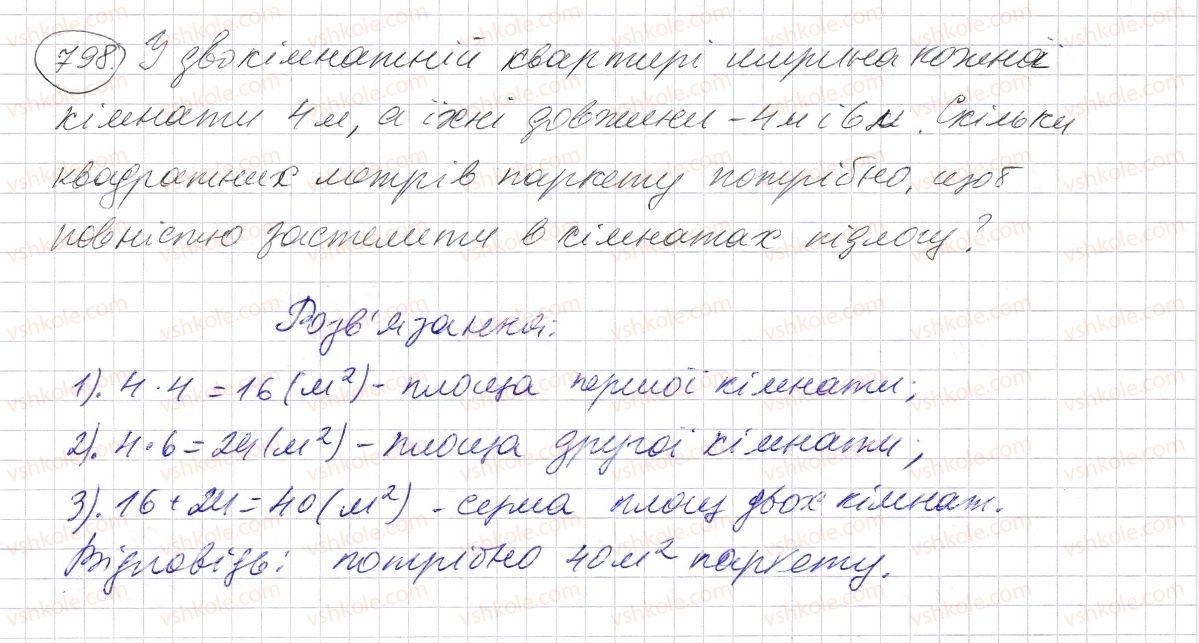 798) У двокімнатній квартирі ширина кожної
кімнати 4 м, а їхні довжини - 4 м і 6 м. Скільки
квадратних метрів паркету потрібно, щоб
повністю застелити в кімнатах підлогу?
Розв'язання:
1). 4 · 4 = 16 (м²) - площа першої кімнати;
2). 4 · 6 = 24 (м²) - площа другої кімнати;
3). 16 + 24 = 40 (м²) - сума площ двох кімнат.
Відповідь: потрібно 40 м² паркету.